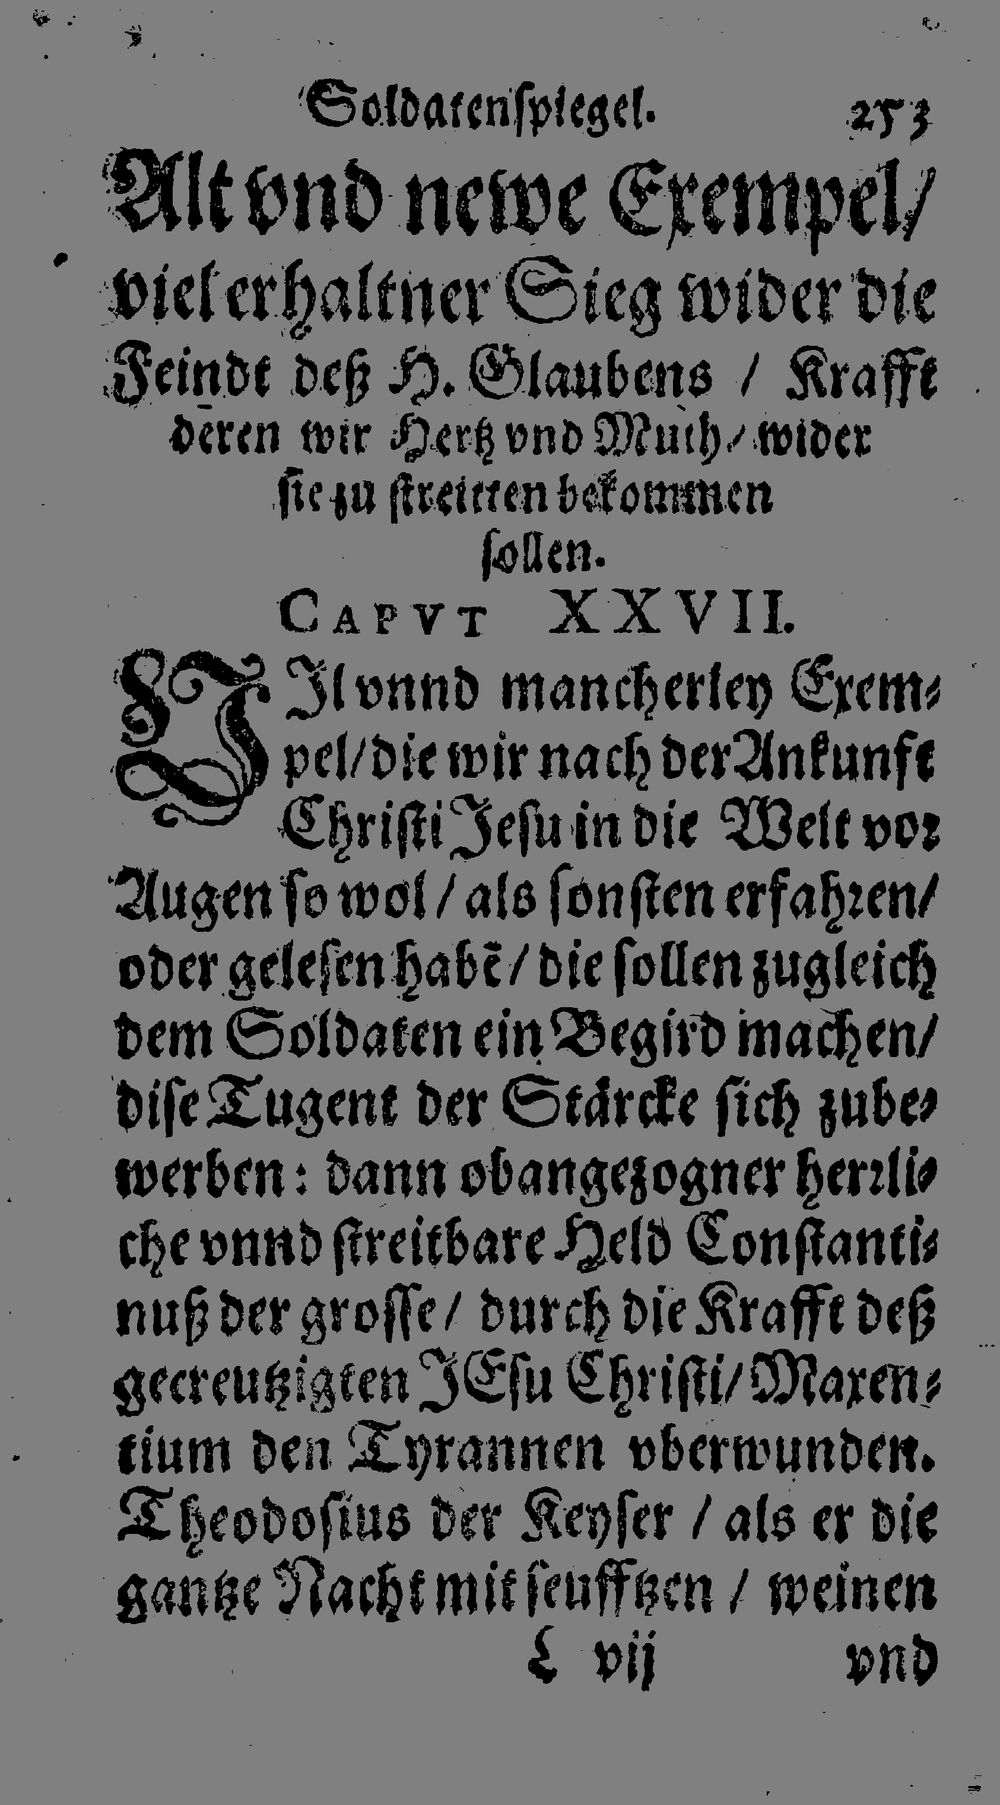 Soldatenspiegel. 253
Alt vnd newe Exempel/
viel erhaltner Sieg wider die
Feindt deß H. Glaubens / Krafft
deren wir Hertz vnd Muth / wider
sie zu streitten bekommen
sollen.
CAPVT XXVII.
VIl vnnd mancherley Exem⸗
pel/ die wir nach der Ankunft
Christi Jesu in die Welt vor
Augen so wol / als sonsten erfahren/
oder gelesen habẽ / die sollen zugleich
dem Soldaten ein Begird machen/
dise Tugent der Stärcke sich zube⸗
werben: dann obangezogner herrli⸗
che vnnd streitbare Held Constanti⸗
nuß der grosse / durch die Krafft deß
gecreutzigten JEsu Christi/ Maxen⸗
tium den Tyrannen vberwunden.
Theodosius der Keyser / als er die
gantze Nacht mit seufftzen / weinen
L vij vnd